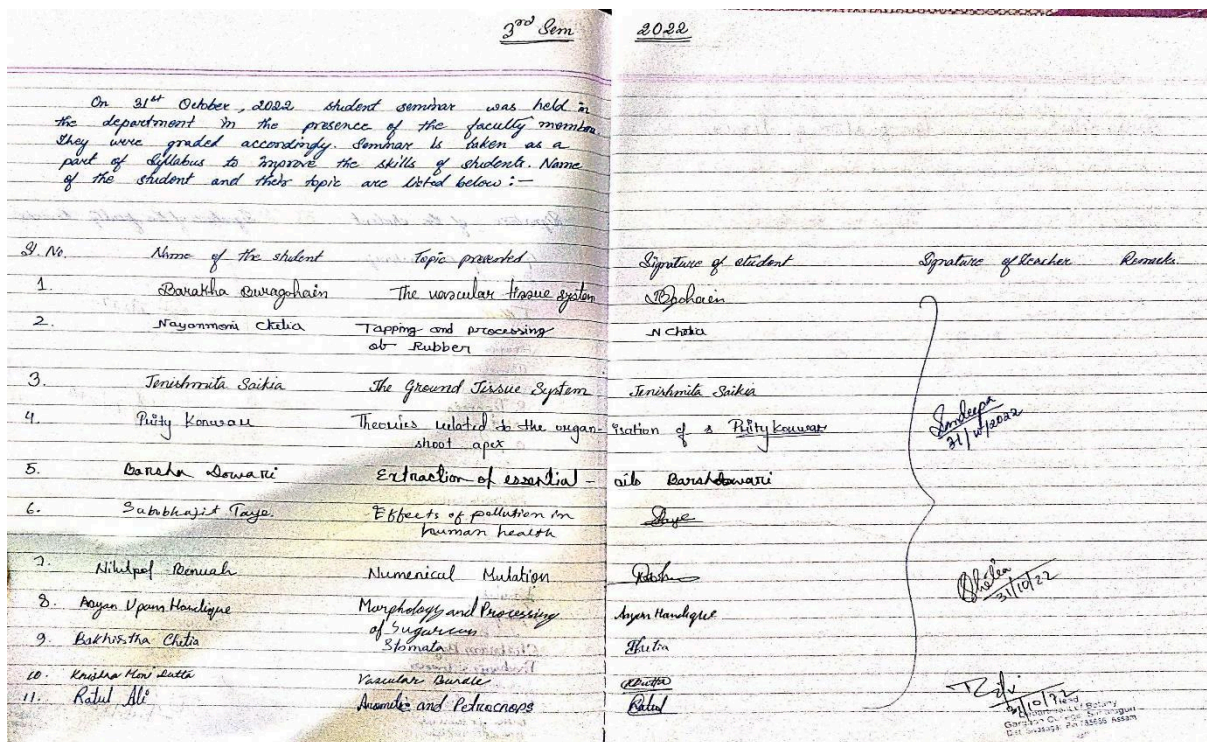 3rd Sem 2022
On 31st October, 2022 student seminar was held in
the department in the presence of the faculty members.
They were graded accordingly. Seminar is taken as a
part of Syllabus to improve the skills of students. Name
of the student and their topic are listed below :-
Sl. No. Name of the student Topic presented Signature of student Signature of teacher Remarks
1. Barakha Buragohain The vascular tissue system
2. Nayanmoni Chetia Tapping and processing N Chetia
of Rubber
3. Jenishmita Saikia The Ground Tissue System Jenishmita Saikia
4. Prity Konwar Theories related to the organ-isation of s Prity Konwar
shoot apex
31/10/2022
5. Barsha Dowari Extraction of essential - oils Barsha Dowari
6. Taye Effects of pollution in
human health
7. Numerical Mutation
31/10/22
8. Handique Morphology and Processing Handique
of Sugarcan
9. Chetia Stomata
10. Krishna Moni Dutta Vascular Bundle
11. Ratul Ali and Petrocrops Ratul
31/10/22
Head
Department of Botany
Gargaon College, Simaluguri
Dist. Sivasagar, Pin 785686, Assam